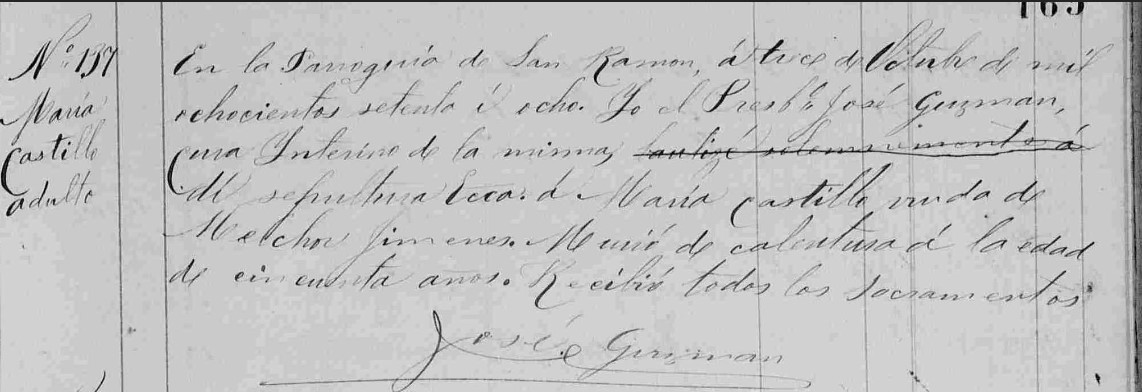 165
Nº 137
María
Castillo
adulto
En la Parroquia de San Ramon, á trece de Octubre de mil
ochocientos setenta i ocho. Yo el Presbº José Guzman,
Cura Interino de la misma, bautizé solemnemente á
dí sepultura Ecca. á María Castillo viuda de
Melchor Jimenes. Murió de calentura á la edad
de cincuenta años. Recibió todos los Sacramentos
José Guzman